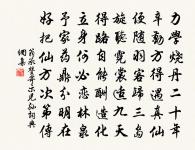 力學燒丹二十年
辛勤方得遇真仙
便隨羽客歸三島
旋聽霓裳適九天
得路自能離造化
立身何必戀林泉
予家藥鼎分明在
好把仙方次第傳
翁承贊寄示兒孫詞典
網集